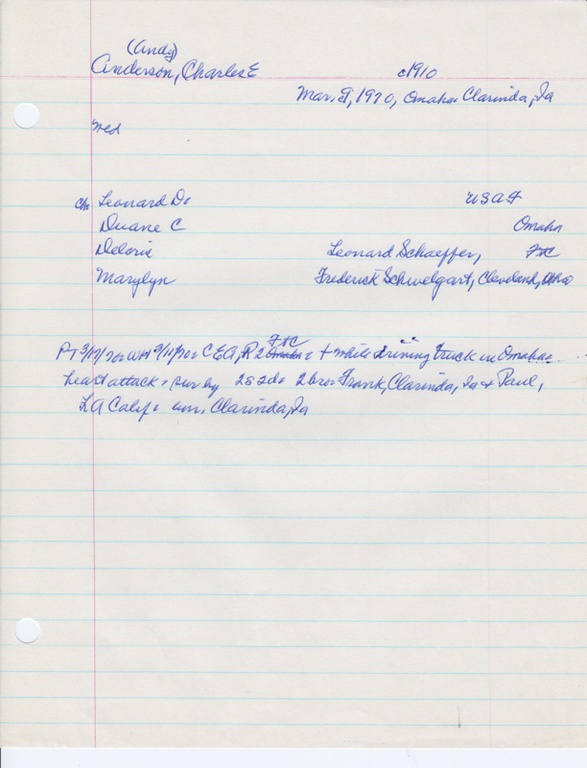 (Andy)
Anderson, Charles E c1910
Mar. 9, 1970, Omaha. Clarinda, Ia
med
ch Leonard D. USAF
Duane C Omaha
Delorie Leonard Schaeffer, FtC
Marylyn Frederick Schwelgart, Cleveland, Ohio
FtC
PT 3/17/70 WH 3/11/70 CEA, R2 Omaha + while driving truck in Omaha
heart attack. sur by 2s 2d. 2 bro. Frank, Clarinda, Ia + Paul,
LA Calif. Clarinda, Ia